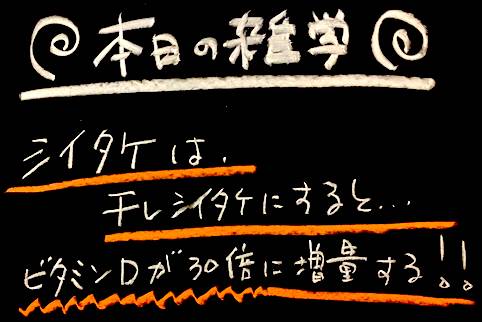 本日の雑学
シイタケは、
干しシイタケにすると...
ビタミンDが30倍に増量する!!